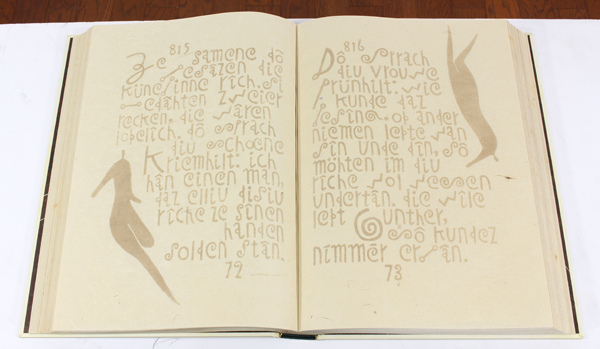 815
Ze samene dô
gesâzen die
küneginne rîch. si
gedâhten zweier
recken, die wâren
lobelîch. dô sprach
diu schoene
Kriemhilt: ich
hân einen man,
daz elliu disiu
rîche ze sînen
handen
solden stân.
72
816
Dô sprach
diu vrouwe
Prünhilt: wie
kunde daz
gesîn. ob ander
niemen lebte wan
sîn unde dîn, sô
möhten im diu
rîche wol wesen
undertân. die wîle
lebt Gunther,
sô kundez
nimmêr ergân.
73